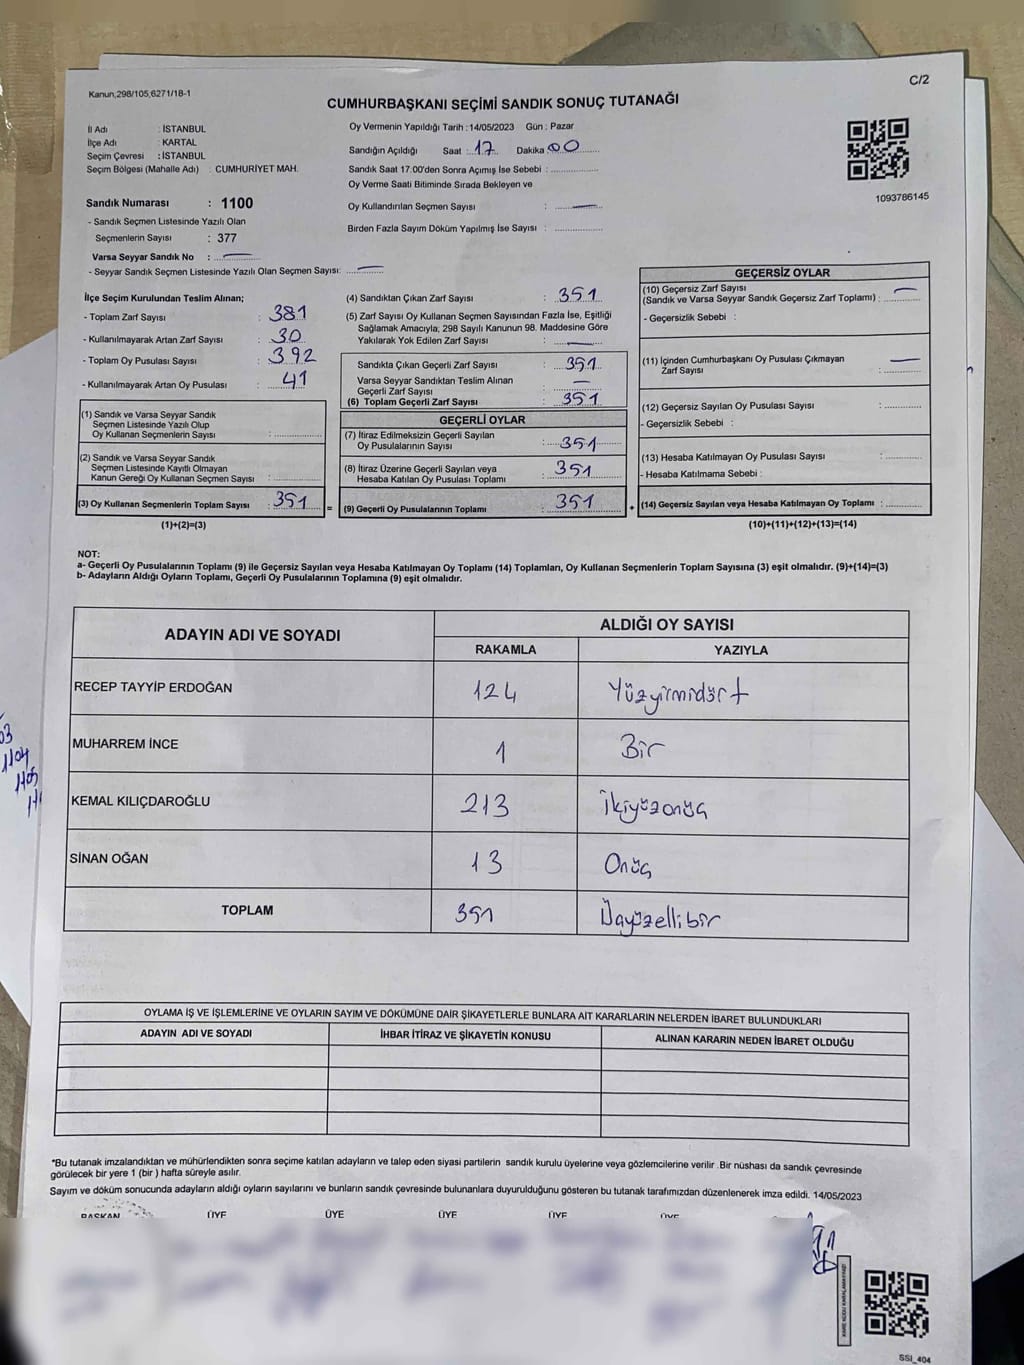 C/2
Kanun,298/105,6271/18-1
CUMHURBAŞKANI SEÇİMİ SANDIK SONUÇ TUTANAĞI
İl Adı : İSTANBUL
İlçe Adı : KARTAL
Seçim Çevresi : İSTANBUL
Seçim Bölgesi (Mahalle Adı) : CUMHURİYET MAH.
Sandık Numarası : 1100
- Sandık Seçmen Listesinde Yazılı Olan
Seçmenlerin Sayısı : 377
Varsa Seyyar Sandık No : —
- Seyyar Sandık Seçmen Listesinde Yazılı Olan Seçmen Sayısı: —
Oy Vermenin Yapıldığı Tarih :14/05/2023 Gün : Pazar
Sandığın Açıldığı Saat :17 Dakika:00
Sandık Saat 17.00'den Sonra Açımış İse Sebebi :
Oy Verme Saati Bitiminde Sırada Bekleyen ve
Oy Kullandırılan Seçmen Sayısı : —
Birden Fazla Sayım Döküm Yapılmış İse Sayısı :
1093786145
İlçe Seçim Kurulundan Teslim Alınan;
- Toplam Zarf Sayısı : 381
- Kullanılmayarak Artan Zarf Sayısı : 30
- Toplam Oy Pusulası Sayısı : 392
- Kullanılmayarak Artan Oy Pusulası : 41
(1) Sandık ve Varsa Seyyar Sandık
Seçmen Listesinde Yazılı Olup
Oy Kullanan Seçmenlerin Sayısı :
(2) Sandık ve Varsa Seyyar Sandık
Seçmen Listesinde Kayıtlı Olmayan
Kanun Gereği Oy Kullanan Seçmen Sayısı :
(3) Oy Kullanan Seçmenlerin Toplam Sayısı : 351
(1)+(2)=(3)
=
(4) Sandıktan Çıkan Zarf Sayısı : 351
(5) Zarf Sayısı Oy Kullanan Seçmen Sayısından Fazla İse, Eşitliği
Sağlamak Amacıyla, 298 Sayılı Kanunun 98. Maddesine Göre
Yakılarak Yok Edilen Zarf Sayısı : —
Sandıkta Çıkan Geçerli Zarf Sayısı : 351
Varsa Seyyar Sandıktan Teslim Alınan
Geçerli Zarf Sayısı : —
(6) Toplam Geçerli Zarf Sayısı : 351
GEÇERLİ OYLAR
(7) İtiraz Edilmeksizin Geçerli Sayılan
Oy Pusulalarının Sayısı : 351
(8) İtiraz Üzerine Geçerli Sayılan veya
Hesaba Katılan Oy Pusulası Toplamı : 351
(9) Geçerli Oy Pusulalarının Toplamı : 351
+
GEÇERSİZ OYLAR
(10) Geçersiz Zarf Sayısı —
(Sandık ve Varsa Seyyar Sandık Geçersiz Zarf Toplamı) :
- Geçersizlik Sebebi :
(11) İçinden Cumhurbaşkanı Oy Pusulası Çıkmayan —
Zarf Sayısı :
(12) Geçersiz Sayılan Oy Pusulası Sayısı :
- Geçersizlik Sebebi :
(13) Hesaba Katılmayan Oy Pusulası Sayısı :
- Hesaba Katılmama Sebebi :
(14) Geçersiz Sayılan veya Hesaba Katılmayan Oy Toplamı :
(10)+(11)+(12)+(13)=(14)
NOT:
a- Geçerli Oy Pusulalarının Toplamı (9) ile Geçersiz Sayılan veya Hesaba Katılmayan Oy Toplamı (14) Toplamları, Oy Kullanan Seçmenlerin Toplam Sayısına (3) eşit olmalıdır. (9)+(14)=(3)
b- Adayların Aldığı Oyların Toplamı, Geçerli Oy Pusulalarının Toplamına (9) eşit olmalıdır.
ADAYIN ADI VE SOYADI ALDIĞI OY SAYISI
RAKAMLA YAZIYLA
RECEP TAYYİP ERDOĞAN 124 Yüzyirmidört
MUHARREM İNCE 1 Bir
KEMAL KILIÇDAROĞLU 213 İkiyüzonüç
SİNAN OĞAN 13 Onüç
TOPLAM 351 Üçyüzellibir
03
1104
1105
OYLAMA İŞ VE İŞLEMLERİNE VE OYLARIN SAYIM VE DÖKÜMÜNE DAİR ŞİKAYETLERLE BUNLARA AİT KARARLARIN NELERDEN İBARET BULUNDUKLARI
ADAYIN ADI VE SOYADI İHBAR İTİRAZ VE ŞİKAYETİN KONUSU ALINAN KARARIN NEDEN İBARET OLDUĞU
*Bu tutanak imzalandıktan ve mühürlendikten sonra seçime katılan adayların ve talep eden siyasi partilerin sandık kurulu üyelerine veya gözlemcilerine verilir .Bir nüshası da sandık çevresinde
görülecek bir yere 1 (bir ) hafta süreyle asılır.
Sayım ve döküm sonucunda adayların aldığı oyların sayılarını ve bunların sandık çevresinde bulunanlara duyurulduğunu gösteren bu tutanak tarafımızdan düzenlenerek imza edildi. 14/05/2023
BAŞKAN ÜYE ÜYE ÜYE ÜYE ÜYE
SSI_404